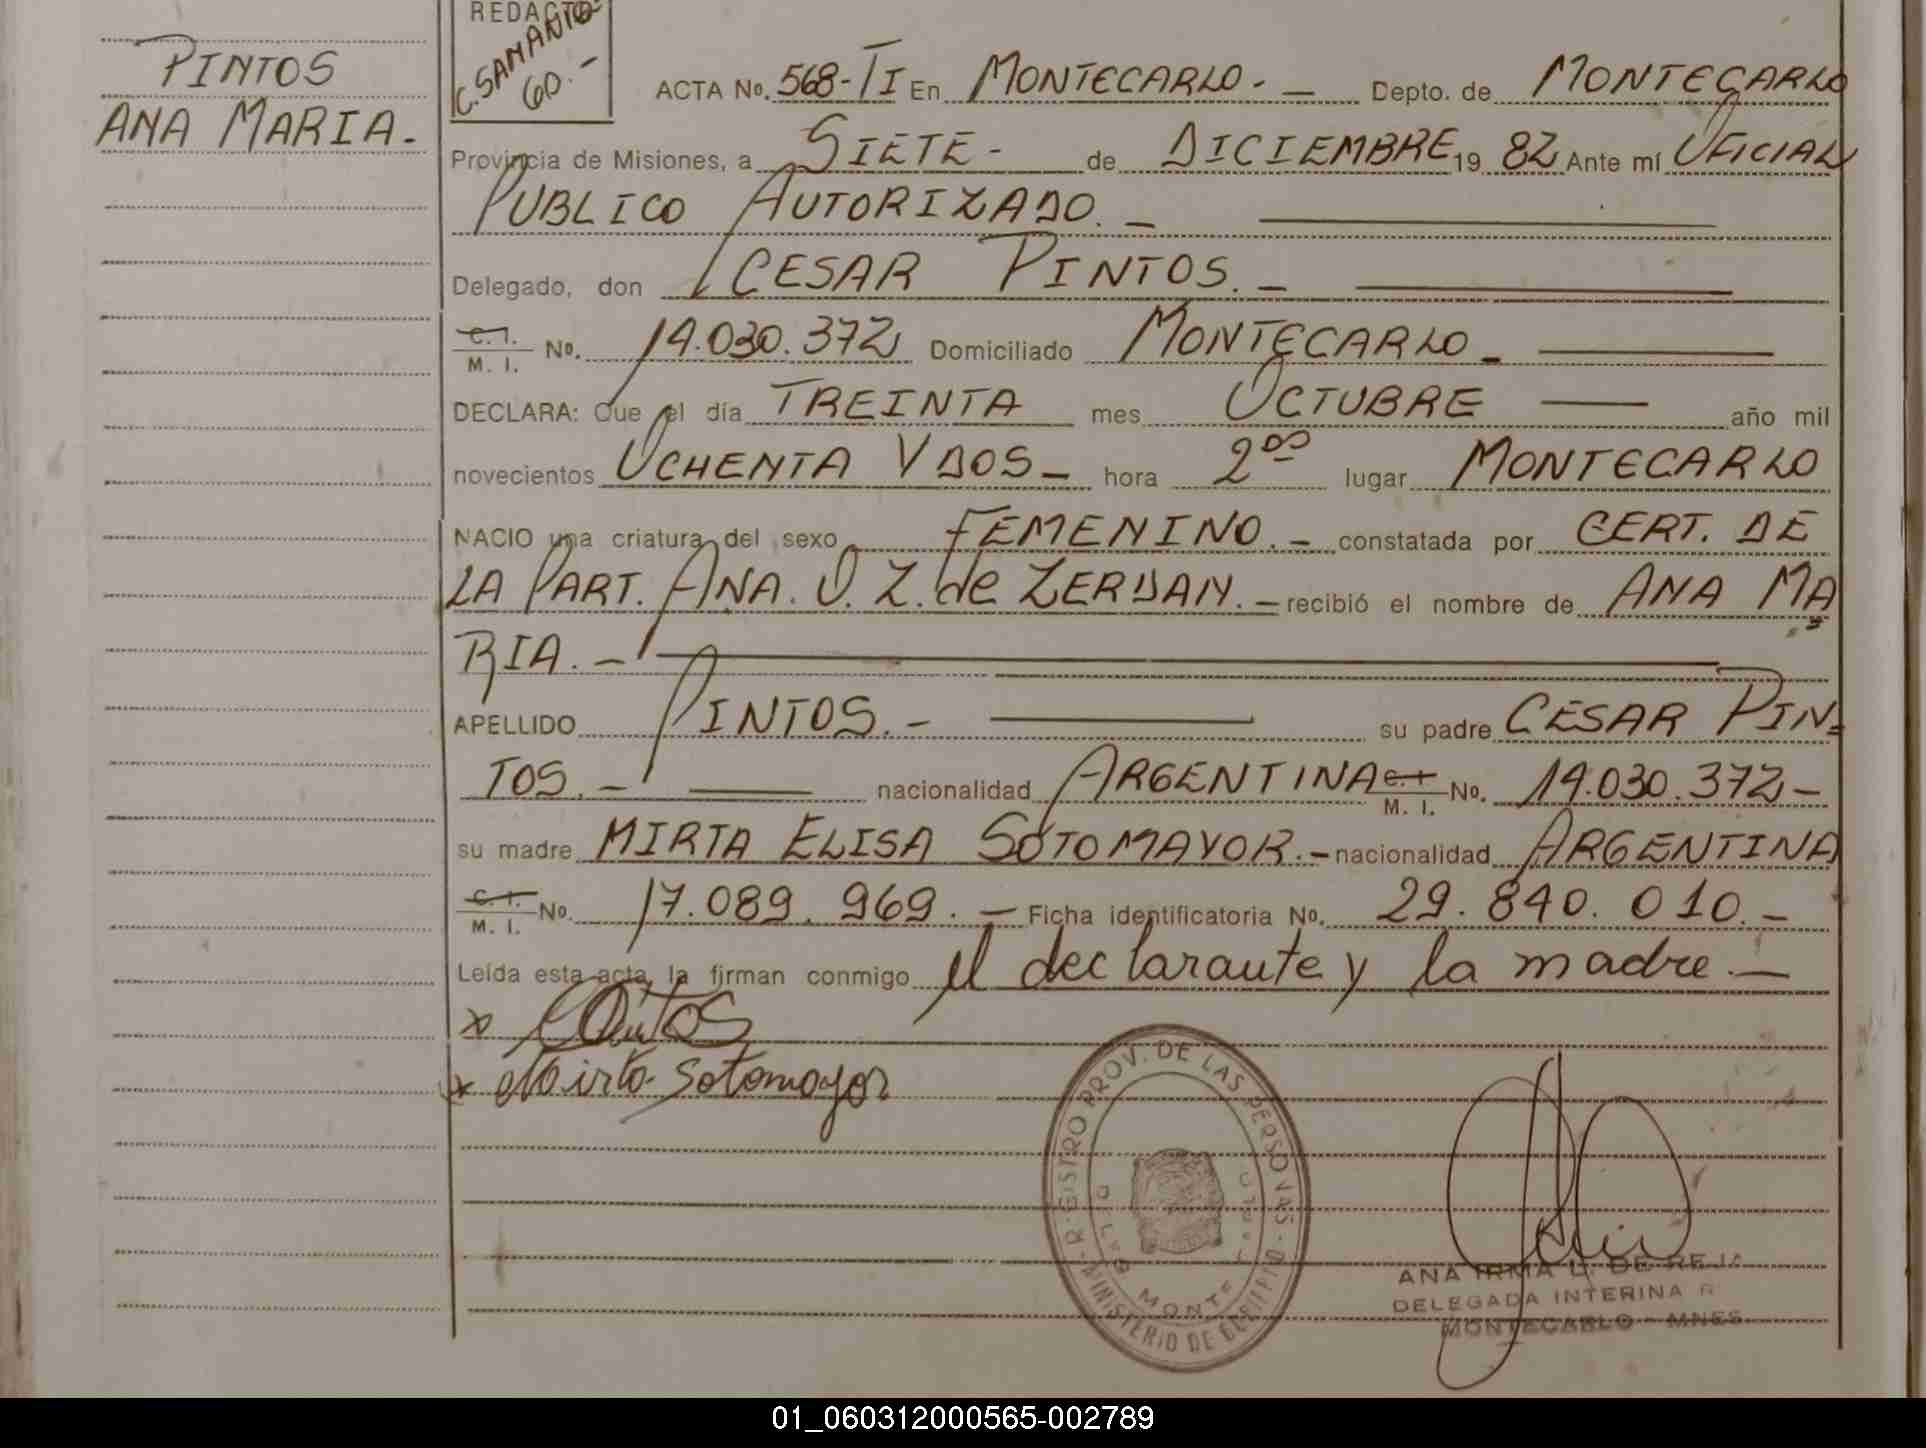 REDACTO
C. SAMANIO-
60.-
PINTOS
ANA MARIA.-
ACTA No. 568-TI En MONTECARLO.- Depto. de MONTECARLO
Provincia de Misiones, a SIETE- de DICIEMBRE 1982 Ante mí OFICIAL
PUBLICO AUTORIZADO.-
Delegado, don CESAR PINTOS.-
C. I.
M. I. No. 14.030.372 Domiciliado MONTECARLO-
DECLARA: Que el día TREINTA mes OCTUBRE año mil
novecientos OCHENTA Y DOS- hora 2⁰⁰ lugar MONTECARLO
NACIO una criatura del sexo FEMENINO.- constatada por CERT. DE
LA PART. ANA. O. Z. de ZERDAN.- recibió el nombre de ANA MA=
RIA.-
APELLIDO PINTOS.- su padre CESAR PIN=
TOS.- nacionalidad ARGENTINA C. I. M. I. No. 14.030.372-
su madre MIRTA ELISA SOTOMAYOR.- nacionalidad ARGENTINA
C. I.
M. I. No. 17.089.969.- Ficha identificatoria No. 29.840.010.-
Leída esta acta, la firman conmigo el declarante y la madre.-
x
x Mirta Sotomayor
REGISTRO PROV. DE LAS PERSONAS
MINISTERIO DE GOBIERNO
MONTE CARLO
ANA IRMA L. DE REJA
DELEGADA INTERINA R
MONTECARLO - MNES
01_060312000565-002789